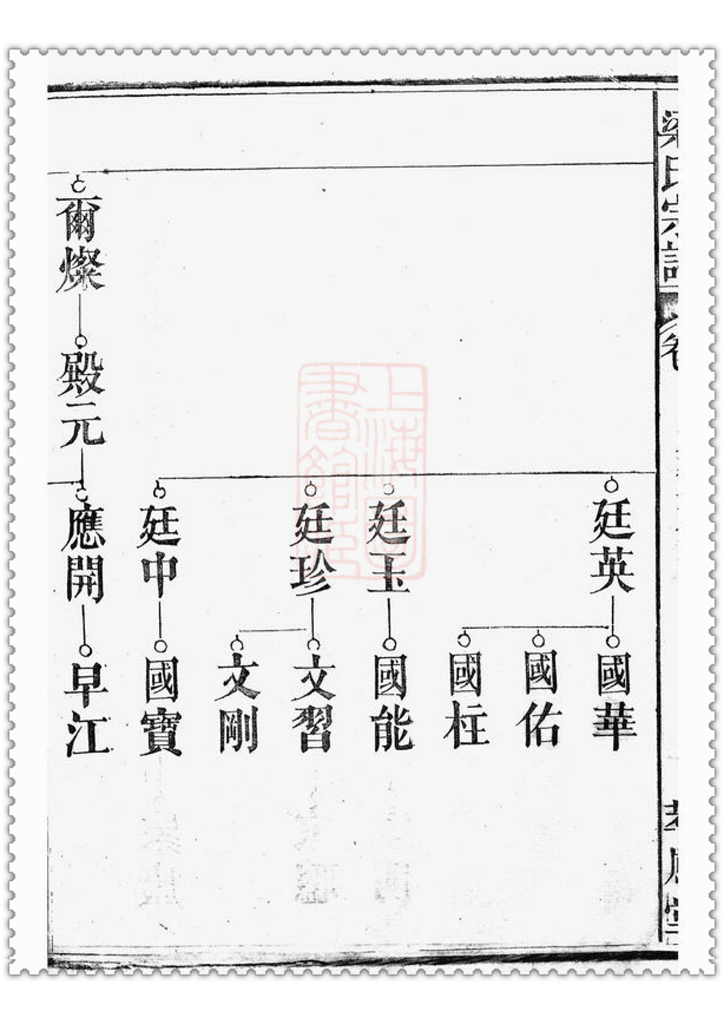 梁氏宗譜
卷
廷英
國華
國佑
國柱
廷玉
國能
廷珍
文習
文剛
廷中
國寶
爾燦
殿元
應開
早江
上海圖
書館藏